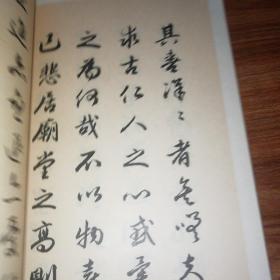 其喜洋洋者矣嗟夫
求古仁人之心或异
之为何哉不以物喜
己悲居庙堂之高则